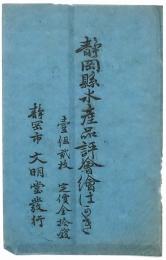 静岡縣水産品評會繪はがき
壹組貳枚 定價金拾錢
静岡市 文明堂發行